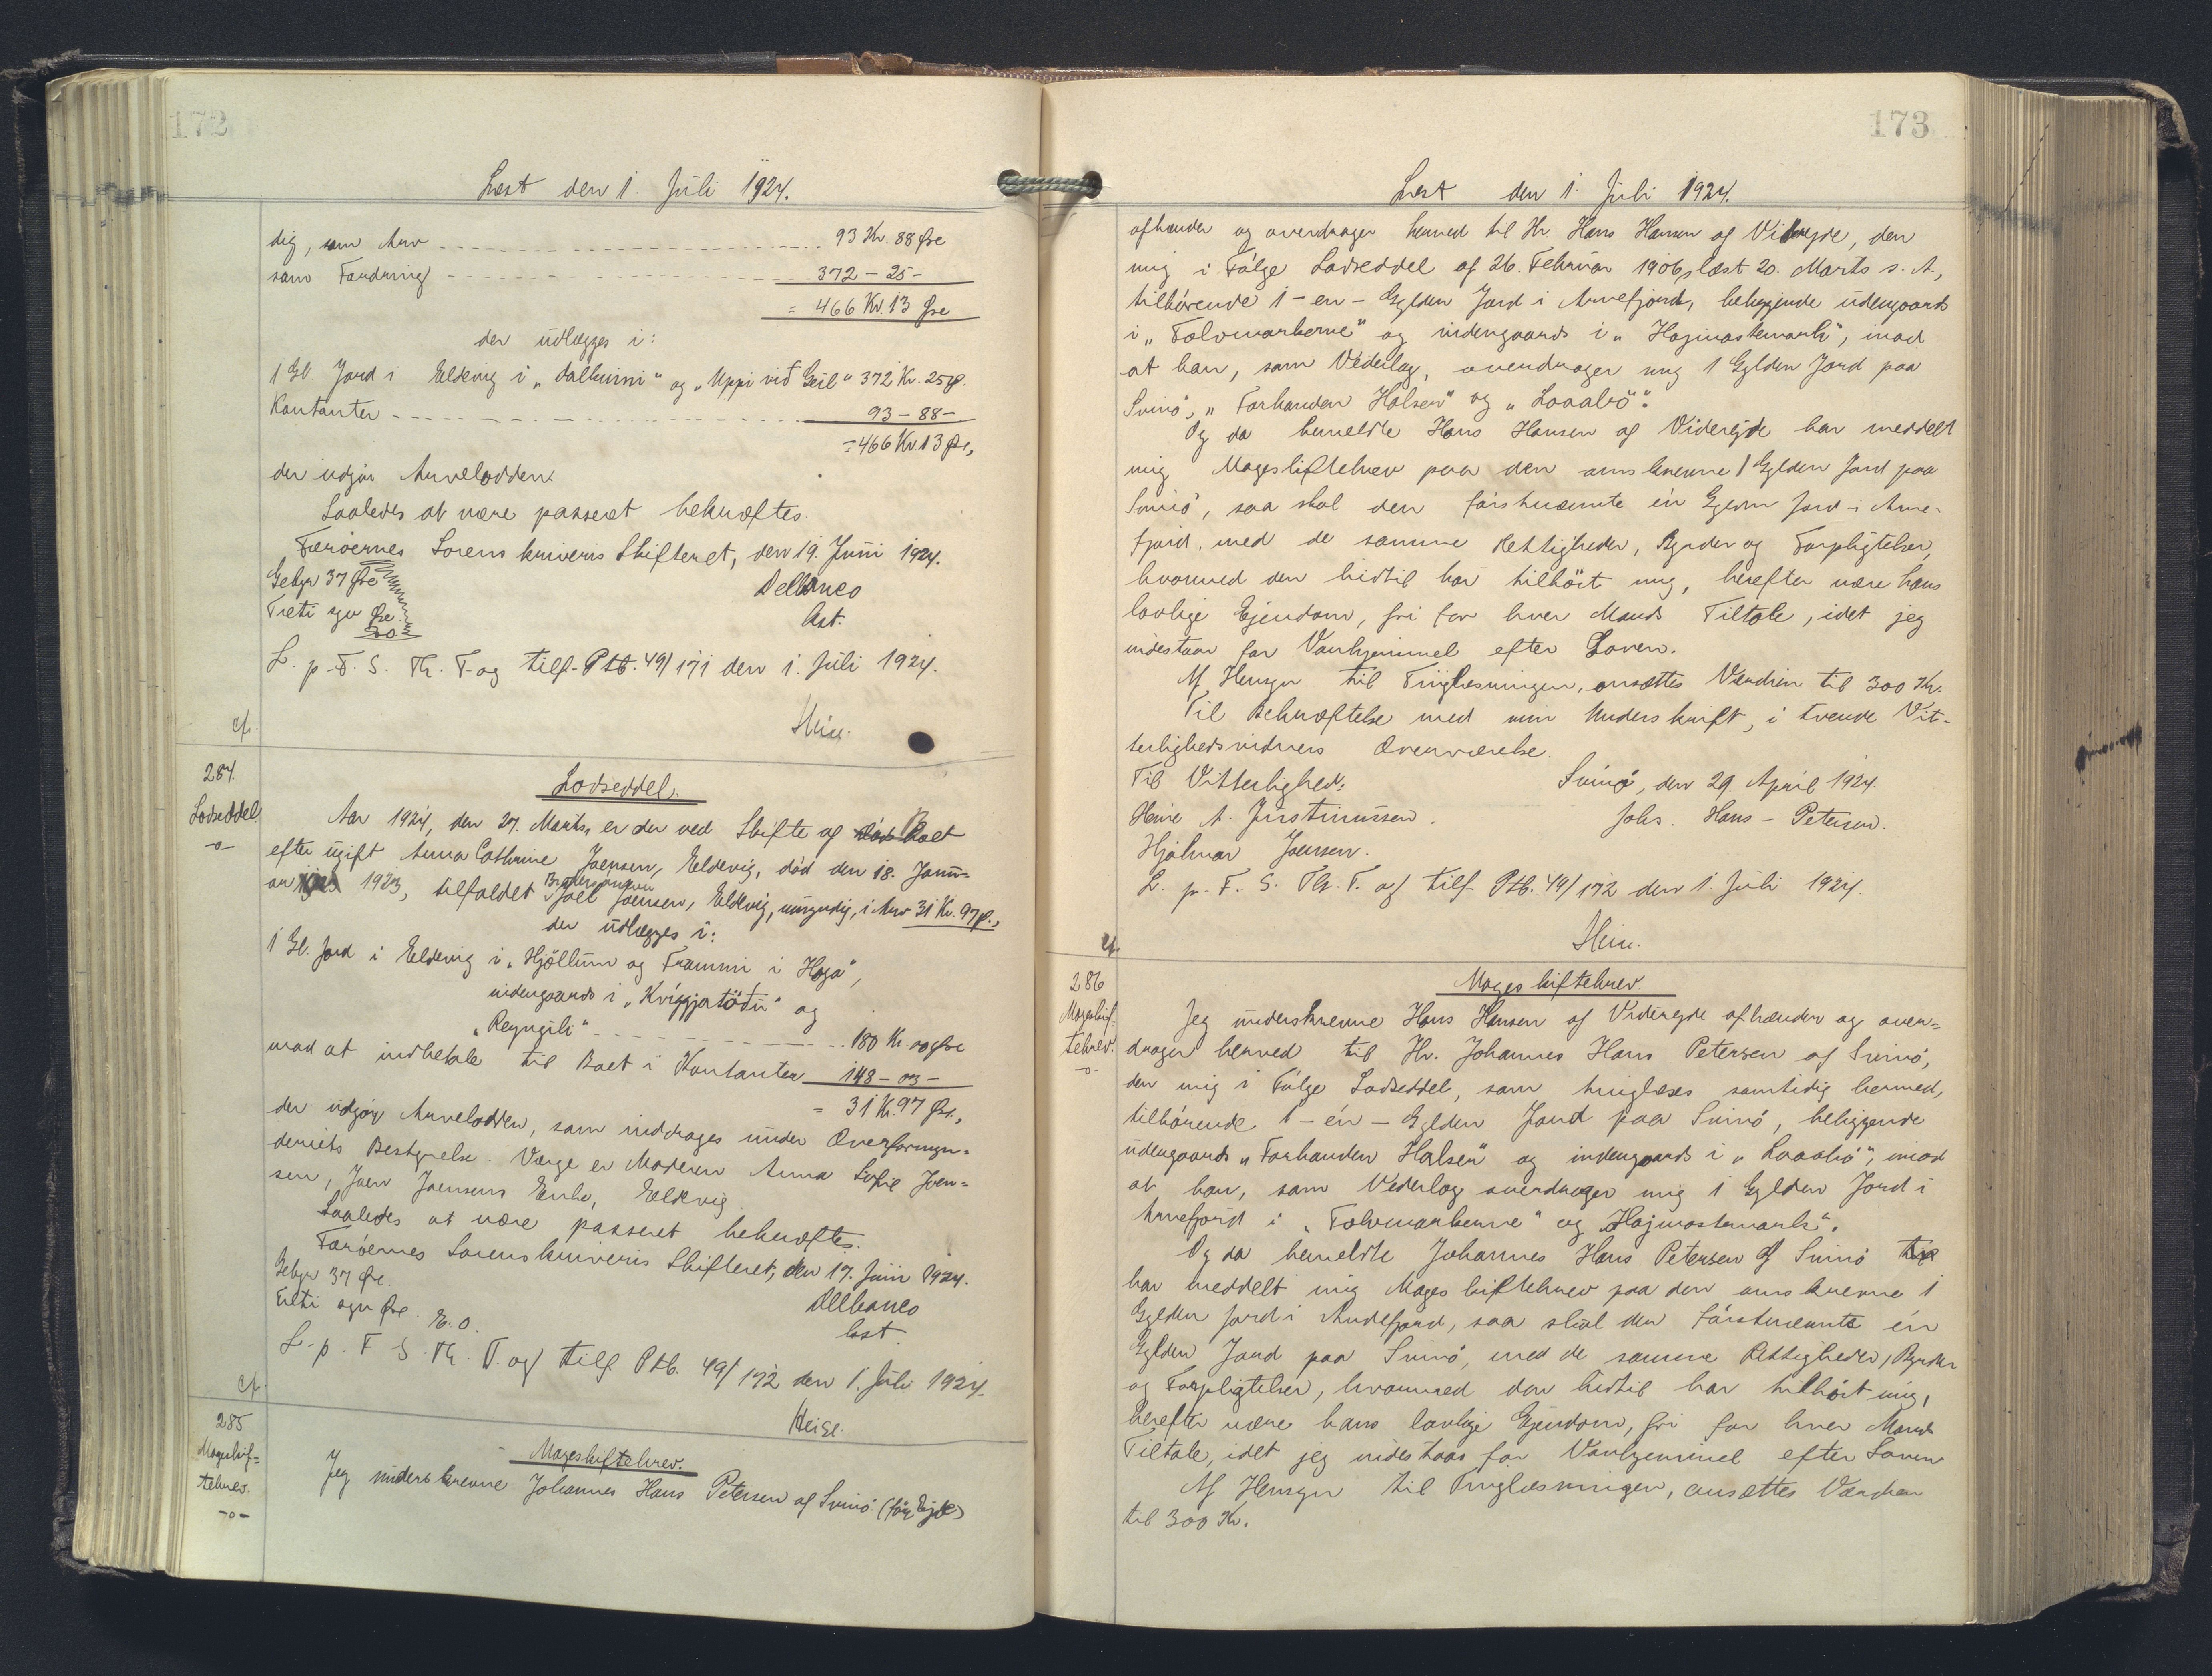 172
Læst den 1. Juli 1924.
dig, som Arv 93 Kr. 88 Øre
som Fordring 372 - 25 -
= 466 Kr. 13 Øre
der udlægges i:
1 Gl. Jord i Eldevig i „dalhúsni" og „Uppi við Geil" 372 Kr. 25 Ø.
Kontanter 93 - 88 -
= 466 Kr. 13 Øre,
der udgør Arvelodden.
Saaledes at være passeret bekræftes.
Færøernes Sorenskriveris Skifteret, den 19. Juni 1924.
Gebyr 37 Øre Delbanco
Treti syv Øre. Cst.
L. p. F. S. Th. T. og tilf. Ptb. 49/171 den 1. Juli 1924.
Heise.
cf.
284.
Lodseddel
-o-
Lodseddel.
Aar 1924, den 27. Marts, er der ved Skifte af Boet
efter ugift Anna Cathrine Joensen, Eldevig, død den 18. Janu-
ar 1923, tilfaldet Brodersønnen Joel Joensen, Eldevig, umyndig, i Arv 31 Kr. 97 Ø.,
der udlægges i:
1 Gl. Jord i Eldevig i „Hjøllum og Frammi i Haga",
indengaards i „Kviggjatöðu" og
„Reyngili" 180 Kr. 00 Øre
mod at indbetale til Boet i Kontanter 148 - 03 -
= 31 Kr. 97 Øre,
der udgør Arvelodden, som inddrages under Overformyn-
deriets Bestyrelse. Værge er Moderen Anna Sofie Joen-
sen, Joen Joensens Enke, Eldevig.
Saaledes at være passeret bekræftes.
Færøernes Sorenskriveris Skifteret, den 17. Juni 1924.
Gebyr 37 Øre. Delbanco
Treti syv Øre. E.O. Cst.
L. p. F. S. Th. T. og tilf. Ptb. 49/172 den 1. Juli 1924.
Heise.
cf.
285
Mageskif-
tebrev.
-o-
Mageskiftebrev.
Jeg underskrevne Johannes Hans Petersen af Svinö (før Ejde)
173
Læst den 1. Juli 1924.
afhænder og overdrager herved til Hr. Hans Hansen af Viderejde, den
mig i Følge Lodseddel af 26. Februar 1906, læst 20. Marts s. A.,
tilhørende 1 - en - Gylden Jord i Arnefjord, beliggende udengaards
i „Tolvmarkerne" og indengaards i „Hojmastemark", imod
at han, som Vederlag, overdrager mig 1 Gylden Jord paa
Svinö, „Forhanden Halsen" og „Loaabö".
Og da bemeldte Hans Hansen af Viderejde har meddelt
mig Mageskiftebrev paa den omskrevne 1 Gylden Jord paa
Svinö, saa skal den førstnævnte én Gylden Jord i Arne-
fjord, med de samme Rettigheder, Byrder og Forpligtelser,
hvormed den hidtil har tilhört mig, herefter være hans
lovlige Ejendom, fri for hver Mands Tiltale, idet jeg
indestaar for Vanhjemmel efter Loven.
Af Hensyn til Tinglæsningen, ansættes Værdien til 300 Kr.
Til Bekræftelse med min Underskrift, i tvende Vit-
terlighedsvidners Overværelse.
Til Vitterlighed: Svinö, den 29. April 1924.
Heine A. Justinussen. Johs. Hans - Petersen.
Hjalmar Joensen.
L. p. F. S. Th. T. og tilf. Ptb. 49/172 den 1. Juli 1924.
Heise.
cf.
286
Mageskif-
tebrev.
-o-
Mageskiftebrev.
Jeg underskrevne Hans Hansen af Viderejde afhænder og over-
drager herved til Hr. Johannes Hans Petersen af Svinö,
den mig i Følge Lodseddel, som tinglæses samtidig hermed,
tilhørende 1 - én - Gylden Jord paa Svinö, beliggende
udengaards „Forhanden Halsen" og indengaards i „Loaabö", imod
at han, som Vederlag overdrager mig 1 Gylden Jord i
Arnefjord i „Tolvmarkerne" og „Hojmastemark".
Og da bemeldte Johannes Hans Petersen af Svinö
har meddelt mig Mageskiftebrev paa den omskrevne 1
Gylden Jord i Andefjord, saa skal den förstnævnte én
Gylden Jord paa Svinö, med de samme Rettigheder, Byrder
og Forpligtelser, hvormed den hidtil har tilhört mig,
herefter være hans lovlige Ejendom, fri for hver Mands
Tiltale, idet jeg indestaar for Vanhjemmel efter Loven
Af Hensyn til Tinglæsningen, ansættes Værdien
til 300 Kr.